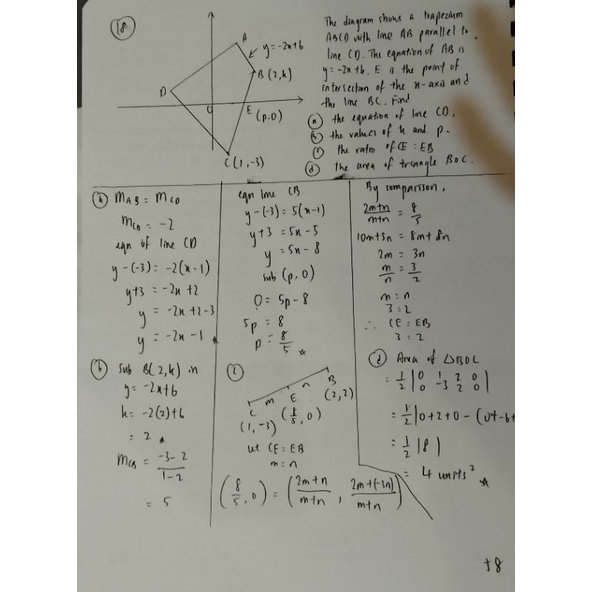 18
The diagram shows a trapezium
ABCD with line AB parallel to
line CD. The equation of AB is
y = -2x+6. E is the point of
intersection of the x-axis and
the line BC. Find
(a) the equation of line CD,
(b) the values of k and p.
(c) the ratio of CE : EB
(d) the area of triangle BOC.
A
y = -2x+6
B (2, k)
D
E
(p,0)
C (1, -3)
(a) MAB = MCD
MCD = -2
eqn of line CD
y-(-3) = -2(x-1)
y+3 = -2x+2
y = -2x+2-3
y = -2x-1
(b) sub B(2,k) in
y = -2x+6
k = -2(2)+6
= 2
MCB = -3-2
1-2
= 5
eqn line CB
y-(-3) = 5(x-1)
y+3 = 5x-5
y = 5x-8
sub (p,0)
0 = 5p-8
5p = 8
p = 8/5
(c)
B
(2,2)
n
E
m
(8/5, 0)
C
(1,-3)
let CE : EB
m : n
(8/5, 0) = (2m+n/m+n, 2m+(-3n)/m+n)
By comparison,
2m+n/m+n = 8/5
10m+5n = 8m+8n
2m = 3n
m/n = 3/2
m : n
3 : 2
∴ CE : EB
3 : 2
(d) Area of △BOC
= 1/2 |0 1 2 0
0 -3 2 0|
= 1/2 |0+2+0 - (0+-6+
= 1/2 |8|
= 4 units²
+8